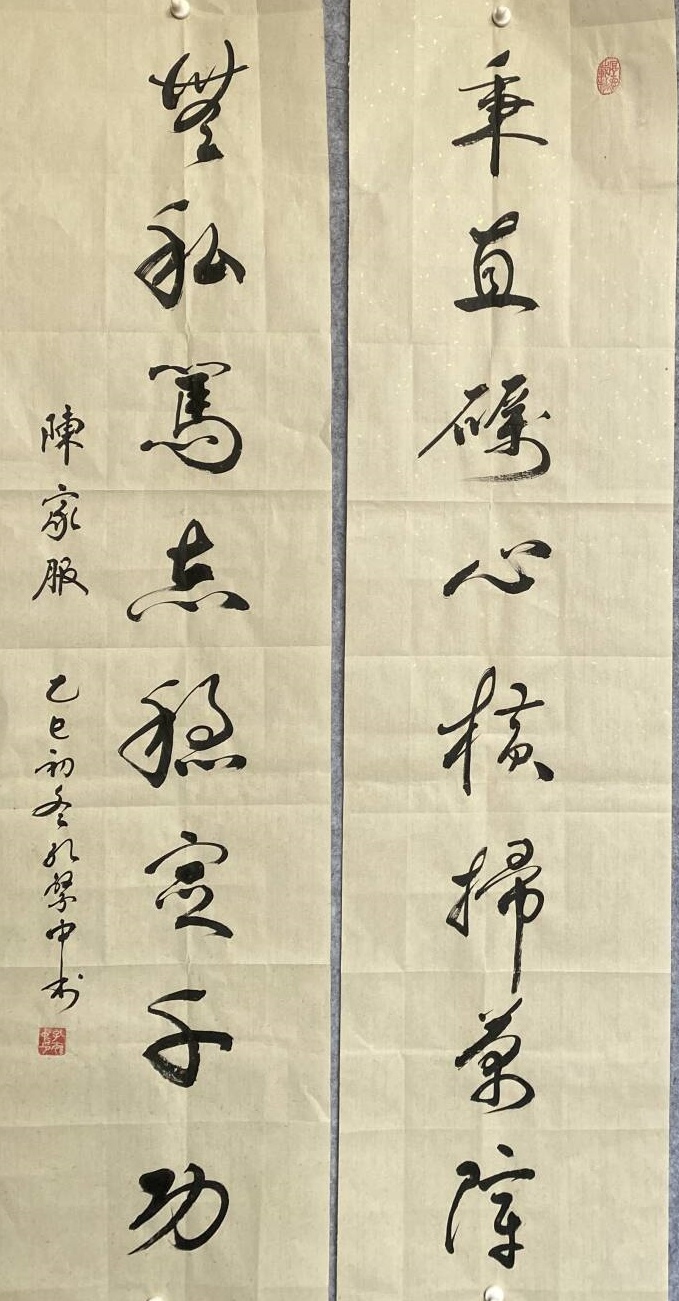 秉直礪心橫掃萬障
無私篤志穩千功
陳家服 乙巳初冬 中